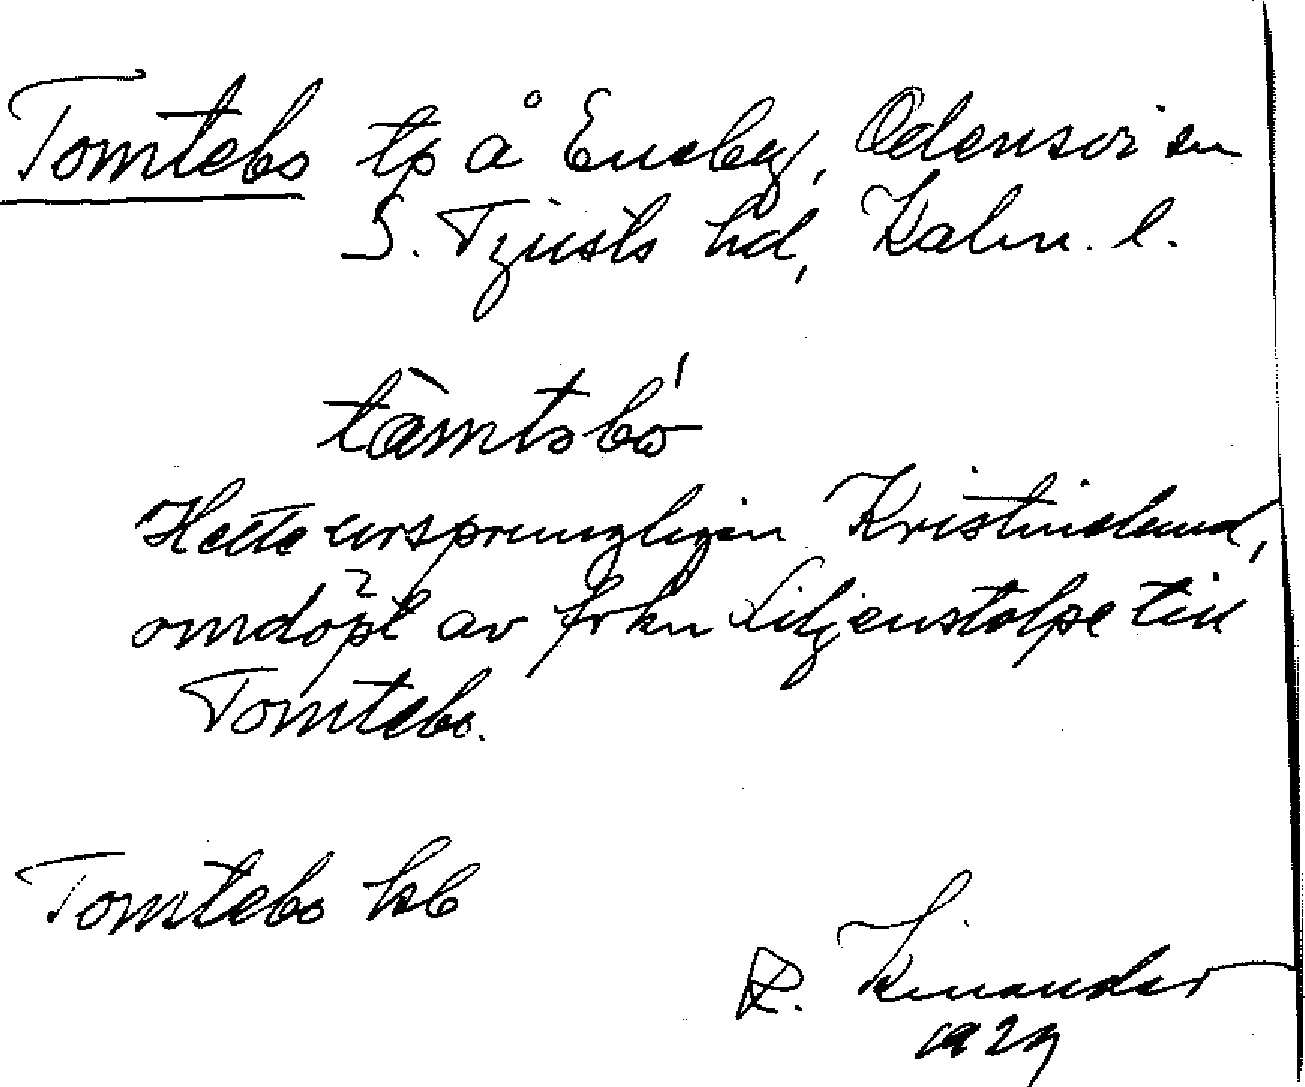 Tomtebo tp å Eneby, Odensvi sn
S. Tjusts hd, Kalm. l.
tòmtəbó
Hette ursprungligen Kristinelund,
omdöpt av frkn Liljenstolpe till
Tomtebo.
Tomtebo kb
R. Kinander
1929